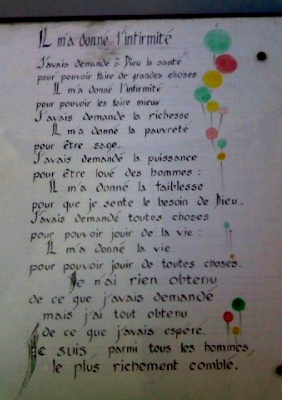 IL m'a donné l'infirmité
J'avais demandé à Dieu la santé
pour pouvoir faire de grandes choses
IL m'a donné l'infirmité
pour pouvoir les faire mieux.
J'avais demandé la richesse
IL m'a donné la pauvreté
pour être sage.
J'avais demandé la puissance
pour être loué des hommes :
IL m'a donné la faiblesse
pour que je sente le besoin de Dieu.
J'avais demandé toutes choses
pour pouvoir jouir de la vie :
IL m'a donné la vie
pour pouvoir jouir de toutes choses.
Je n'ai rien obtenu
de ce que j'avais demandé
mais j'ai tout obtenu
de ce que j'avais espéré.
Je suis parmi tous les hommes
le plus richement comblé.